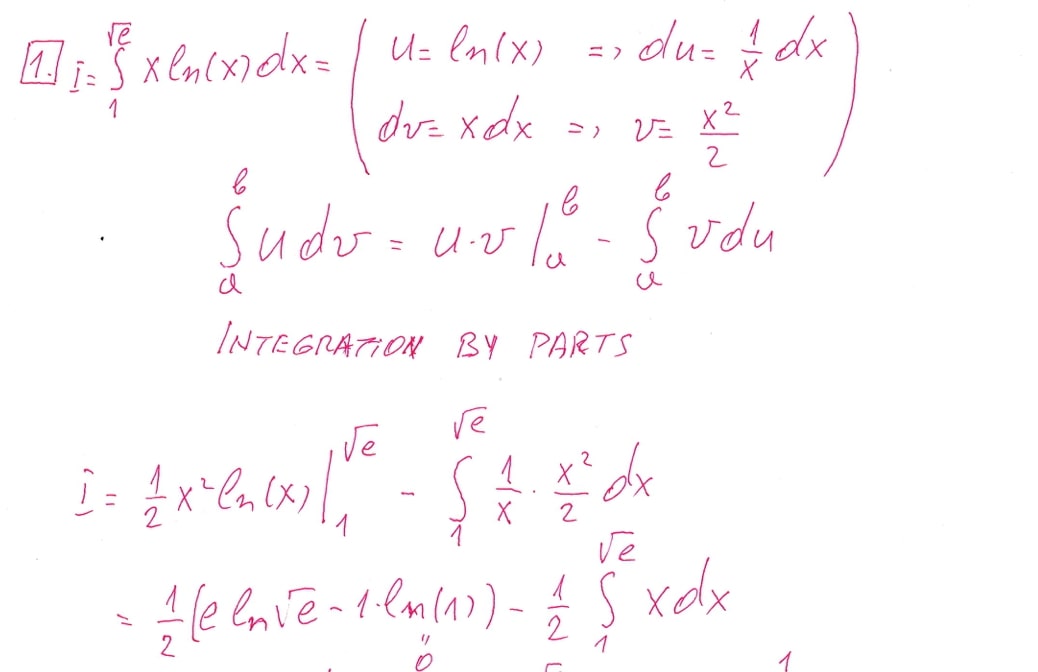 1. I = ∫₁^√e x ln(x) dx = ( u = ln(x) => du = 1/x dx
dv = x dx => v = x²/2 )
∫ₐᵇ u dv = u·v |ₐᵇ - ∫ₐᵇ v du
INTEGRATION BY PARTS
I = 1/2 x² ln(x) |₁^√e - ∫₁^√e 1/x · x²/2 dx
= 1/2 (e ln√e - 1·ln(1)) - 1/2 ∫₁^√e x dx
" 0